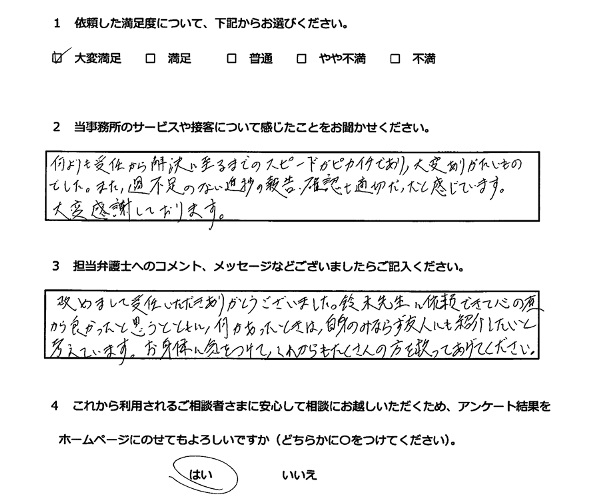 1 依頼した満足度について、下記からお選びください。
☑ 大変満足 □ 満足 □ 普通 □ やや不満 □ 不満
2 当事務所のサービスや接客について感じたことをお聞かせください。
何よりも受任から解決に至るまでのスピードがピカイチであり、大変ありがたいもの
でした。また、過不足のない進捗の報告、確認も適切だったと感じています。
大変感謝しております。
3 担当弁護士へのコメント、メッセージなどございましたらご記入ください。
改めまして受任いただきありがとうございました。鈴木先生に依頼できて心の底
から良かったと思うとともに、何かあったときは、自身のみならず友人にも紹介したいと
考えています。お身体に気をつけて、これからもたくさんの方を救ってあげてください。
4 これから利用されるご相談者さまに安心して相談にお越しいただくため、アンケート結果を
ホームページにのせてもよろしいですか（どちらかに〇をつけてください）。
はい いいえ